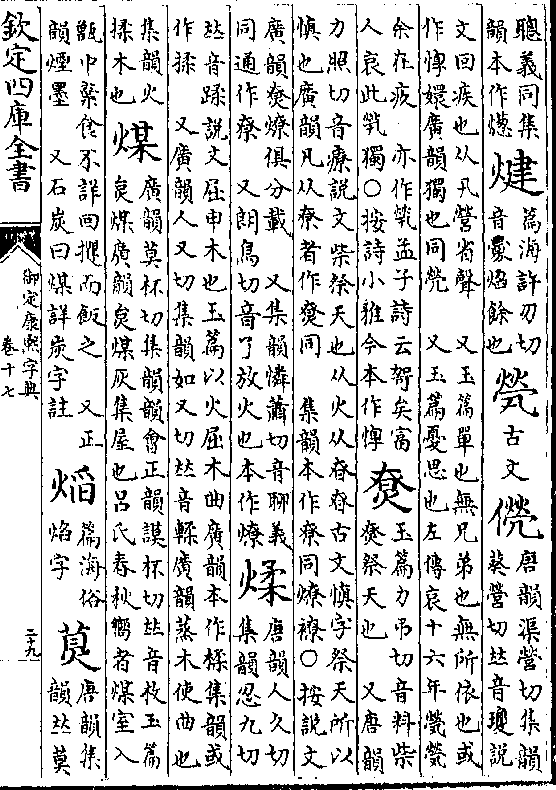 聰義同集
韻本作
煡
篇海許刃切
音釁焰餘也
煢
古文
唐韻渠營切集韻
葵營切𠀤音瓊說
文回疾也从卂營省聲　又玉篇單也無兄弟也無所依也或
作惸嬛廣韻獨也同㷀　又玉篇憂思也左傳哀十六年煢煢
余在疚　亦作㷀孟子詩云哿矣富
人哀此㷀獨○按詩小雅今本作惸
尞
玉篇力弔切音料柴
尞祭天也　又唐韻
力照切音療說文柴祭天也从火从昚昚古文慎字祭天所以
慎也廣韻凡从尞者作尞同　集韻本作尞同燎○按說文
廣韻尞燎俱分載　又集韻憐蕭切音聊義
同通作尞　又朗鳥切音了放火也本作燎
煣
唐韻人久切
集韻忍九切
𠀤音蹂說文屈申木也玉篇以火屈木曲廣韻本作楺集韻或
作揉　又廣韻人又切集韻如又切𠀤音輮廣韻蒸木使曲也
集韻火
揉木也
煤
廣韻莫杯切集韻韻會正韻謨杯切𠀤音枚玉篇
炱煤廣韻炱煤灰集屋也呂氏春秋嚮者煤室入
甑中棄食不詳回攫而飯之　又正
韻煙墨　又石炭曰煤詳炭字註
熖
篇海俗
焰字
唐韻集
韻𠀤莫
欽定四庫全書
御定康熙字典
卷十七
二十九